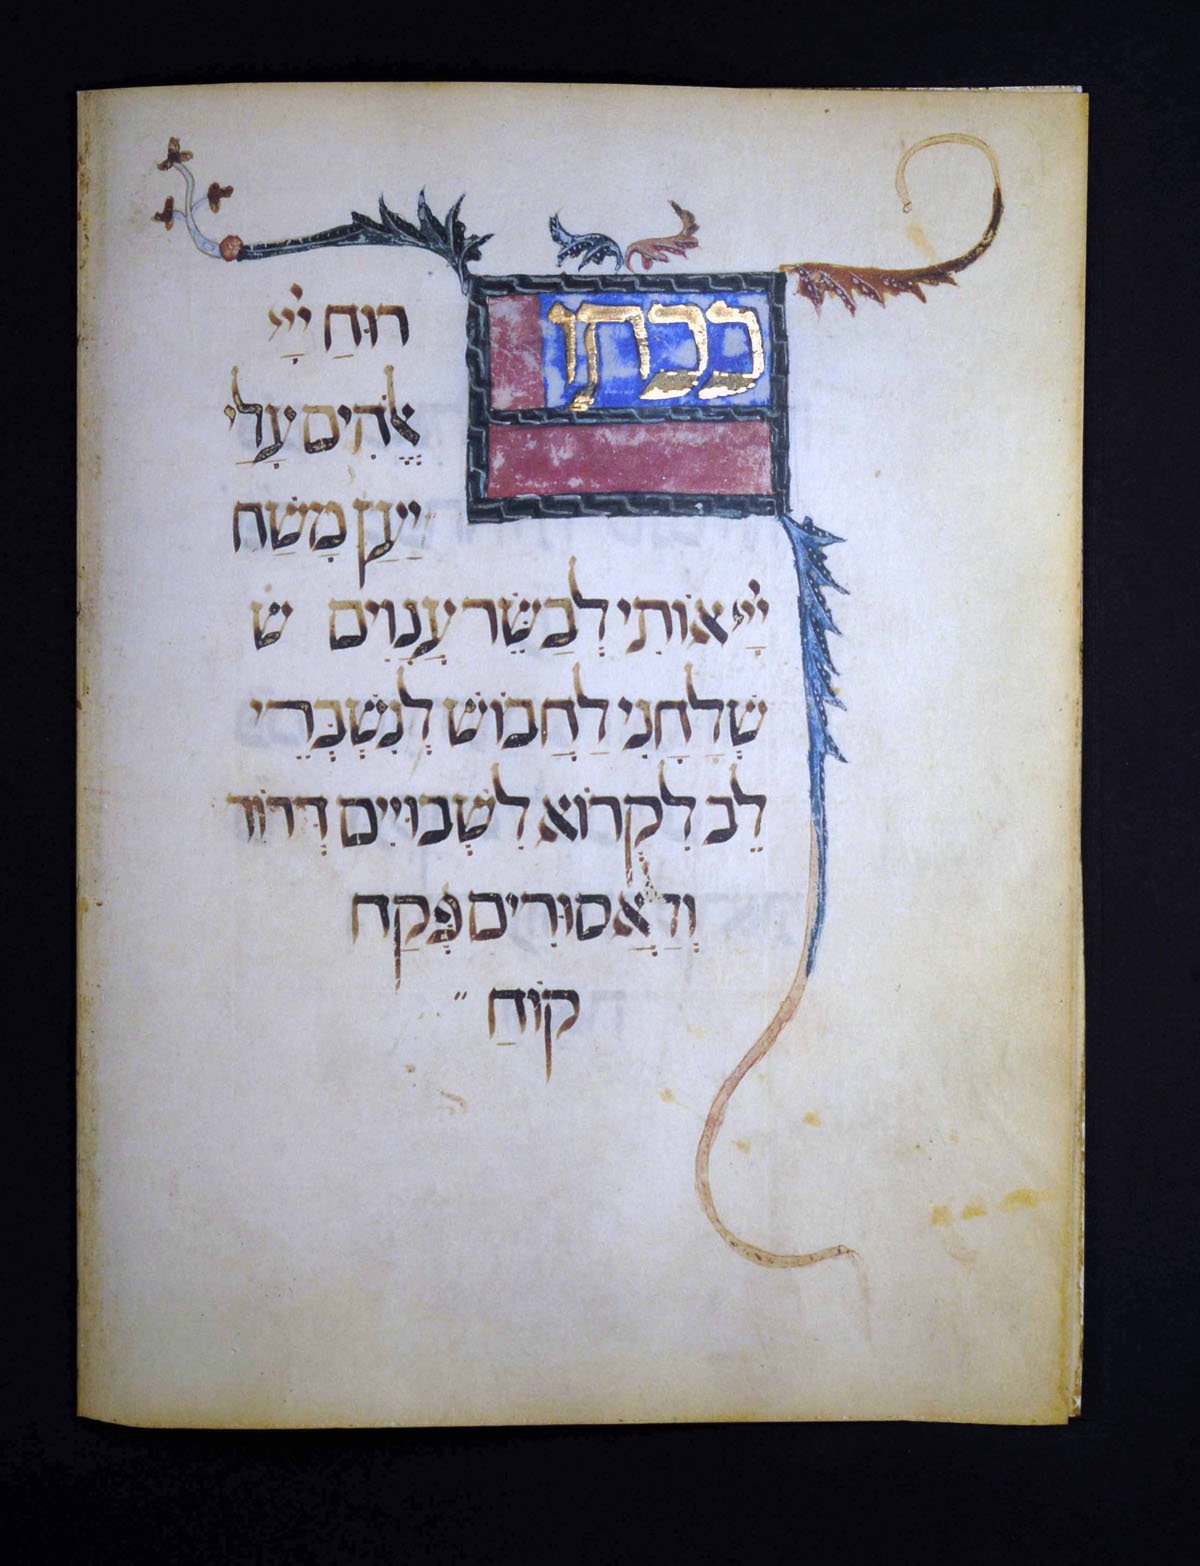 ככתו רוּחַ יְיָ
אֱלֹהִים עָלַי
יַעַן מָשַׁח
יְיָ אוֹתִי לְבַשֵּׂר עֲנָוִים ש
שְׁלָחַנִי לַחֲבוֹשׁ לְנִשְׁבְּרֵי
לֵב לִקְרוֹא לִשְׁבוּיִים דְּרוֹר
וְלַאֲסוּרִים פְּקַח
קוֹחַ